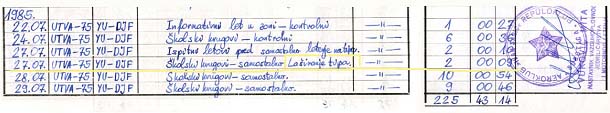 1985.
22.07. UTVA-75 YU-DJF Informativni let u zoni - kontrolni —"— 1 00 27
24.07. UTVA-75 YU-DJF Školski krugovi - kontrolni —"— 6 00 36
27.07. UTVA-75 YU-DJF Ispitni letovi pred samostalno letenje —"— 2 00 10
27.07. UTVA-75 YU-DJF Školski krugovi - samostalno —"— 2 00 09
28.07. UTVA-75 YU-DJF Školski krugovi - samostalno. —"— 10 00 54
29.07. UTVA-75 YU-DJF Školski krugovi - samostalno. —"— 9 00 46
225 43 14
AEROKLUB